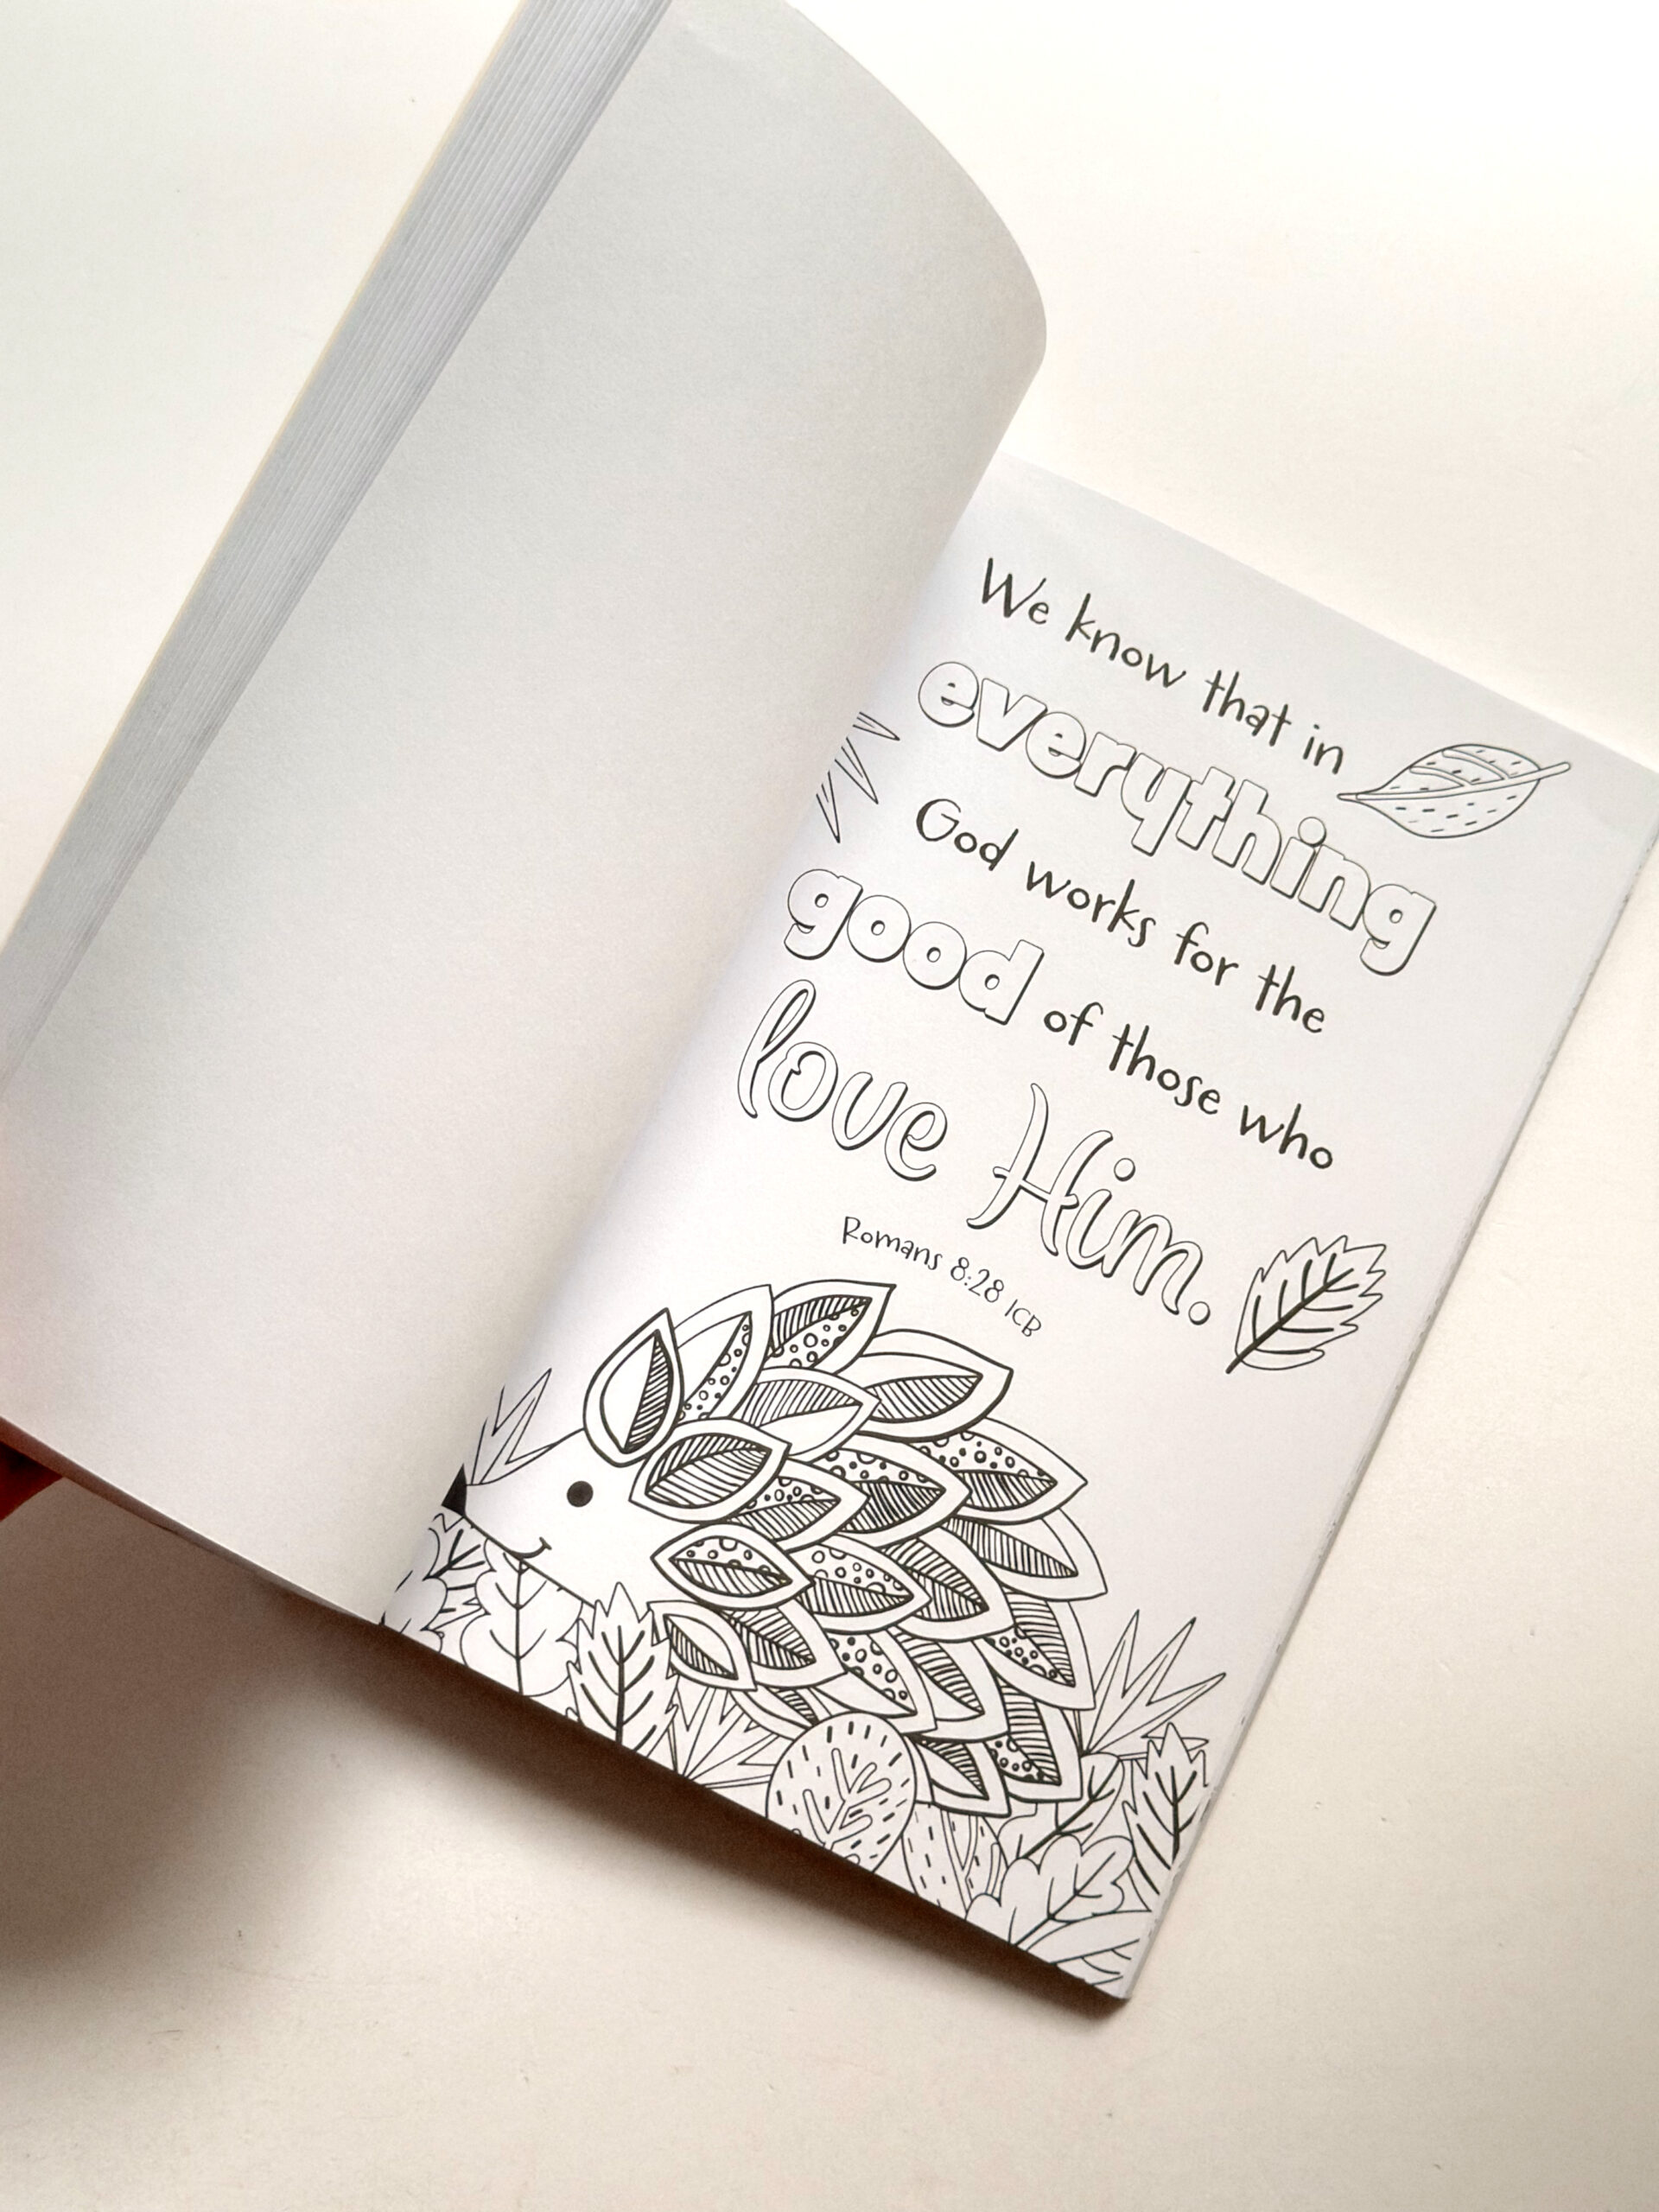 We know that in
everything
God works for the
good of those who
love Him.
Romans 8:28 ICB